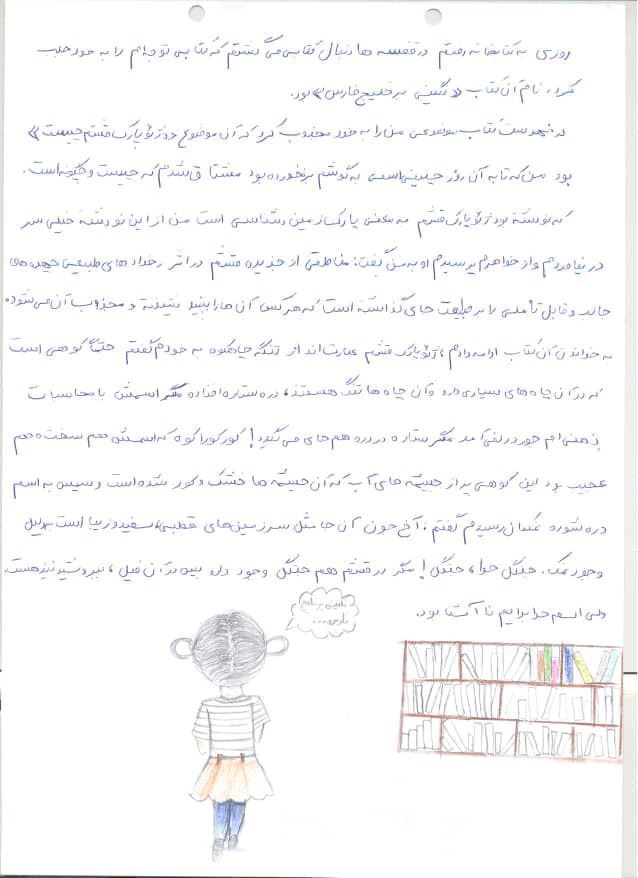 روزی به کتابخانه رفتم در قفسه ها دنبال کتابی می گشتم که کتابی توجه ام را به خود جلب
کرد. نام آن کتاب «نگینی بر خلیج فارس» بود.
در فهرست کتاب موضوعی من را به خود مجذوب کرد که آن موضوع «ژئوپارک قشم چیست»
بود من که تا به آن روز چنین اسمی به گوشم برنخورده بود مشتاق شدم که چیست و چگونه است.
که نوشته بود ژئوپارک قشم به معنی پارک زمین شناسی است من از این نوشته خیلی سر
در نیاوردم و از خواهرم پرسیدم او به من گفت: مناطقی از جزیره قشم در اثر رخداد های طبیعی چهره های
جالب و قابل تأملی را بر طبیعت جای گذاشته است که هر کس آن ها را ببیند مجذوب آن می شود
به خواندن آن کتاب ادامه دادم، ژئوپارک قشم عبارت اند از تنگه چاهکوه به خودم گفتم حتماً کوهی است
که در آن چاه های بسیاری دارد و آن چاه ها تنگ هستند، دره ستاره افتاده مگر اسمش با محاسبات
ذهنی ام جور در نمی آمد مگر ستاره در دره هم جای می گیرد! کورکورا کوه که اسمش هم سخت و هم
عجیب بود این کوهی پر از چشمه های آب که آن چشمه ها خشک و کور شده است و سپس به اسم
دره شور نمکدان رسیدم گفتم: آخ جون آن جا مثل سرزمین های قطبی، سفید و زیبا است به دلیل
وجود نمک. جنگل حرا، جنگل! مگر در قشم هم جنگل وجود دارد ببین در آن فیل، ببر و شیر نیز هست
ولی اسم حرا برایم نا آشنا بود.
نگینی بر خلیج
فارس...